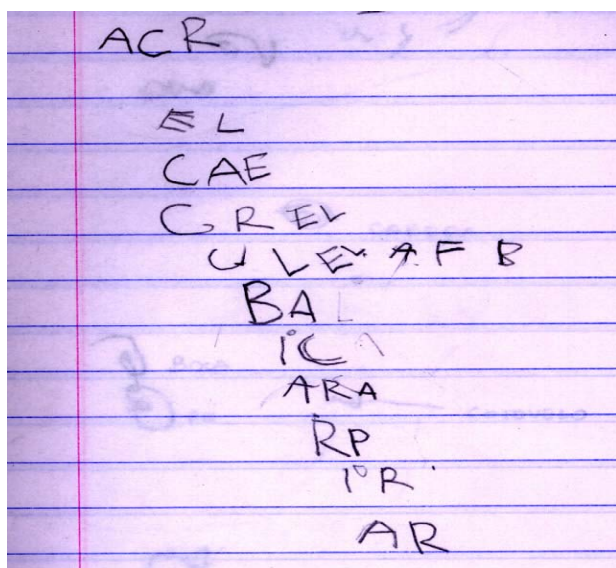 ACR
EL
CAE
GREL
ULELAFB
BAL
iC
ARA
RP
iR
AR